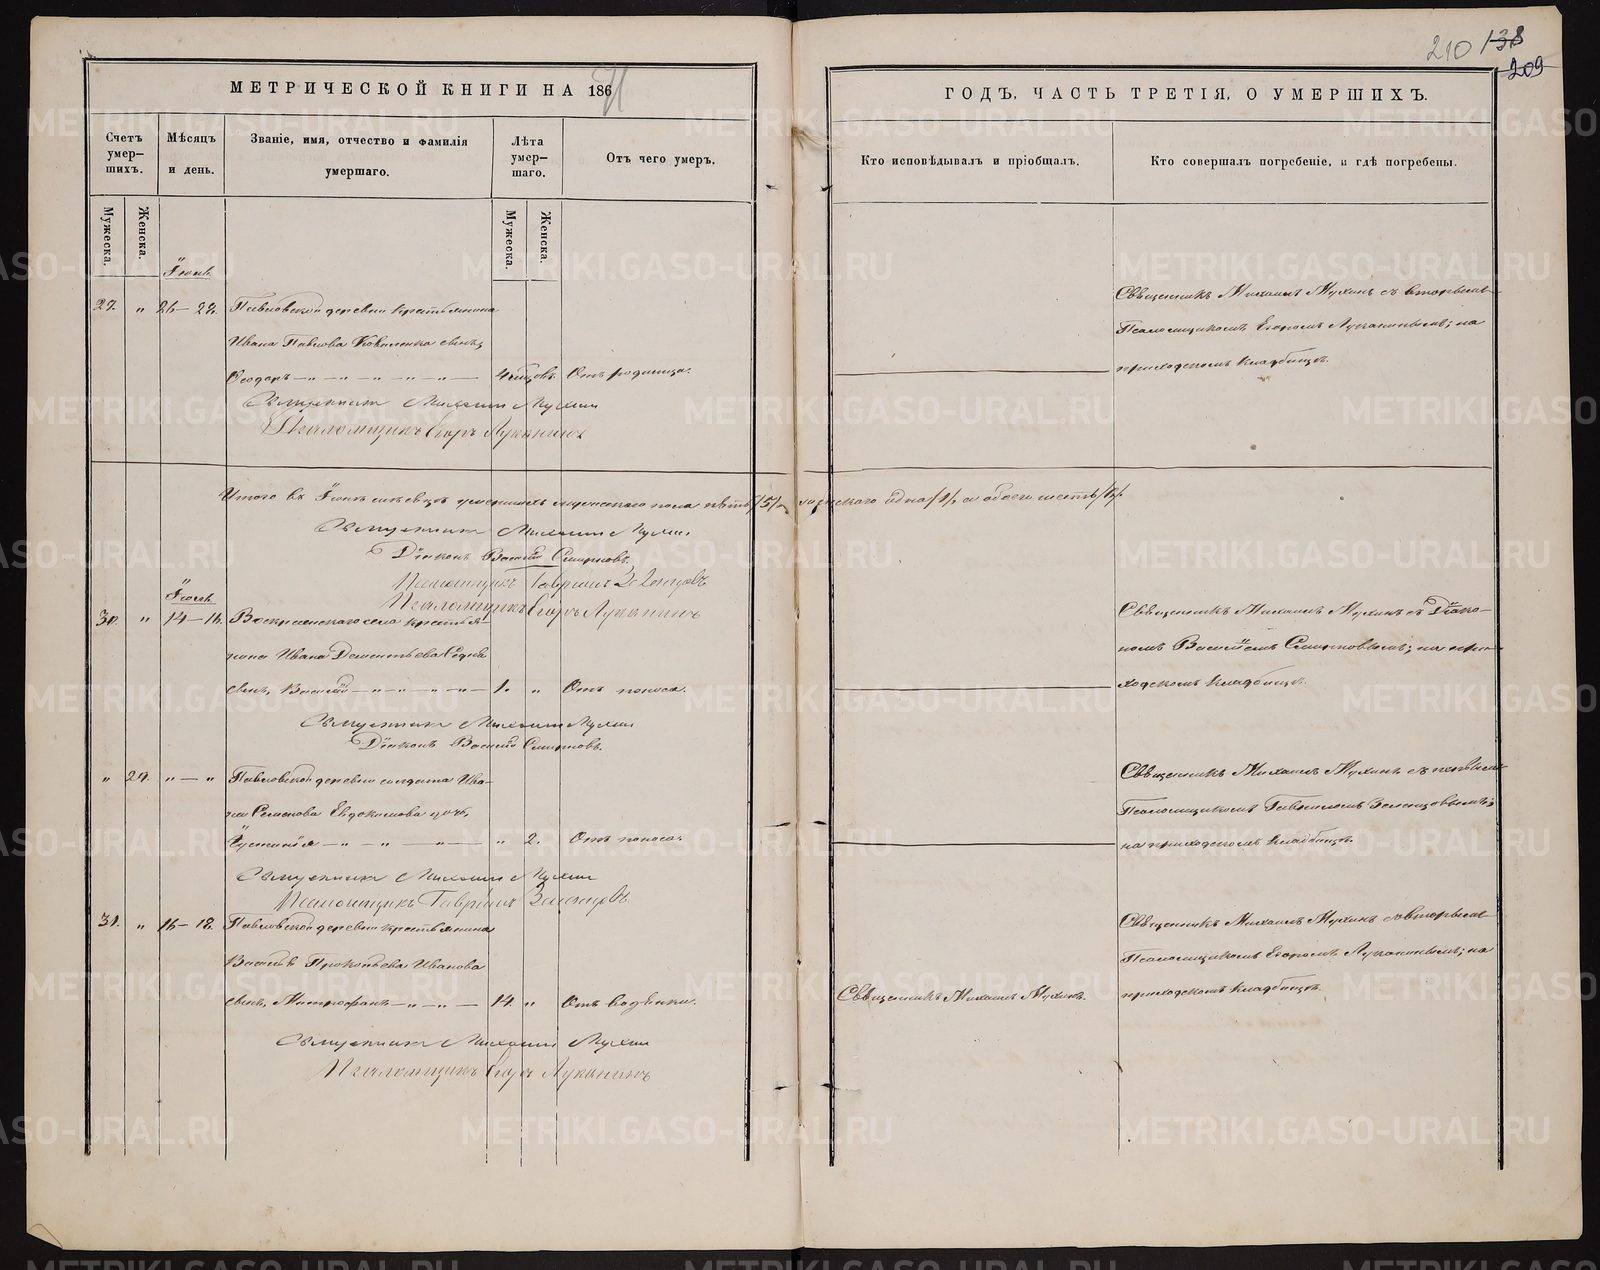 210 138
209
МЕТРИЧЕСКОЙ КНИГИ НА 1871
ГОДЪ, ЧАСТЬ ТРЕТІЯ, О УМЕРШИХЪ.
Счетъ умер-шихъ.
Мѣсяцъ и день.
Званіе, имя, отчество и фамилія умершаго.
Лѣта умер-шаго.
Отъ чего умеръ.
Кто исповѣдывалъ и пріобщалъ.
Кто совершалъ погребеніе, и гдѣ погребены.
Мужеска.
Женска.
Мужеска.
Женска.
Іюнь.
29. " 26–28. Павловской деревни крестьянина
Ивана Павлова сынъ,
Ѳеодоръ — " — " — " — 4 мѣсяцовъ. Отъ родимца.
Священникъ Михаилъ Мухинъ съ вторымъ
Псаломщикомъ Егоромъ Луканинымъ; на
приходскомъ кладбищѣ.
Священникъ Михаилъ Мухин
Псаломщикъ Егоръ Луканинъ
Итого въ Іюнѣ мѣсяцѣ умершихъ мужескаго пола пять /5/, женскаго одна /1/ а обоего шесть /6/.
Священникъ Михаилъ Мухин
Діаконъ Василій Смирновъ.
Псаломщикъ Гавріилъ Зеленцовъ
Псаломщикъ Егоръ Луканинъ
Іюль.
30. " 14–16. Воскресенскаго села крестья-
нина Ивана Дементьева
сынъ, Василій — " — " — " — 1. " Отъ поноса.
Священникъ Михаилъ Мухинъ съ Діако-
номъ Василіемъ Смирновымъ; на при-
ходскомъ кладбищѣ.
Священникъ Михаилъ Мухин
Діаконъ Василій Смирновъ.
" 24. " — " Павловской деревни солдата Ива-
на Семенова Евдокимова дочь,
Іустинія — " — " — " — " 2. Отъ поноса.
Священникъ Михаилъ Мухинъ съ первымъ
Псаломщикомъ Гавріиломъ Зеленцовымъ;
на приходскомъ кладбищѣ.
Священникъ Михаилъ Мухин
Псаломщикъ Гавріилъ Зеленцовъ.
31. " 16–18. Павловской деревни крестьянина
Василья Прокопьева Иванова
сынъ, Митрофанъ — " — " — 14. " Отъ водянки.
Священникъ Михаилъ Мухинъ.
Священникъ Михаилъ Мухинъ съ вторымъ
Псаломщикомъ Егоромъ Луканинымъ; на
приходскомъ кладбищѣ.
Священникъ Михаилъ Мухин
Псаломщикъ Егоръ Луканинъ
METRIKI.GASO-URAL.RU